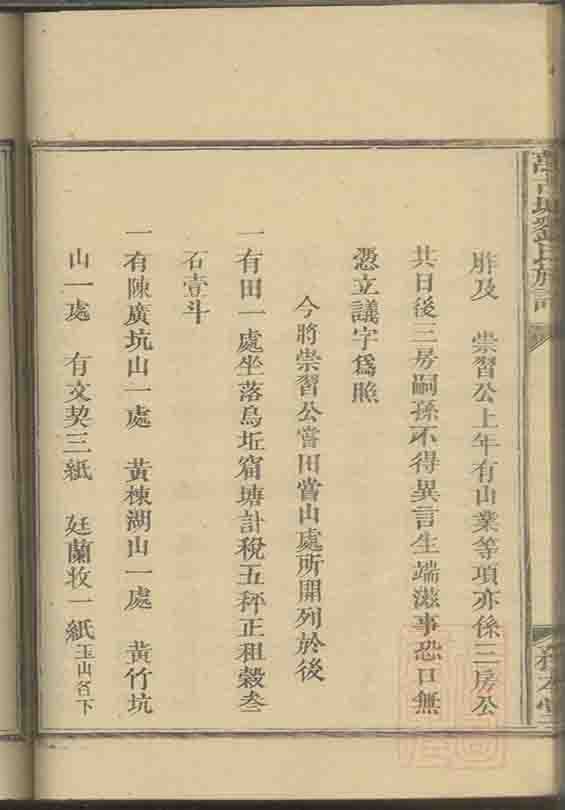 胙及　崇習公上年有山業等項亦係三房公
共日後三房嗣孫不得異言生端滋事恐口無
憑立議字爲照
今將崇習公嘗田嘗山處所開列於後
一有田一處坐落烏坵窩塘計稅五秤正租穀叁
石壹斗
一有陳廣坑山一處　黃楝湖山一處　黃竹坑
山一處　有文契三紙　廷蘭收一紙玉山名下